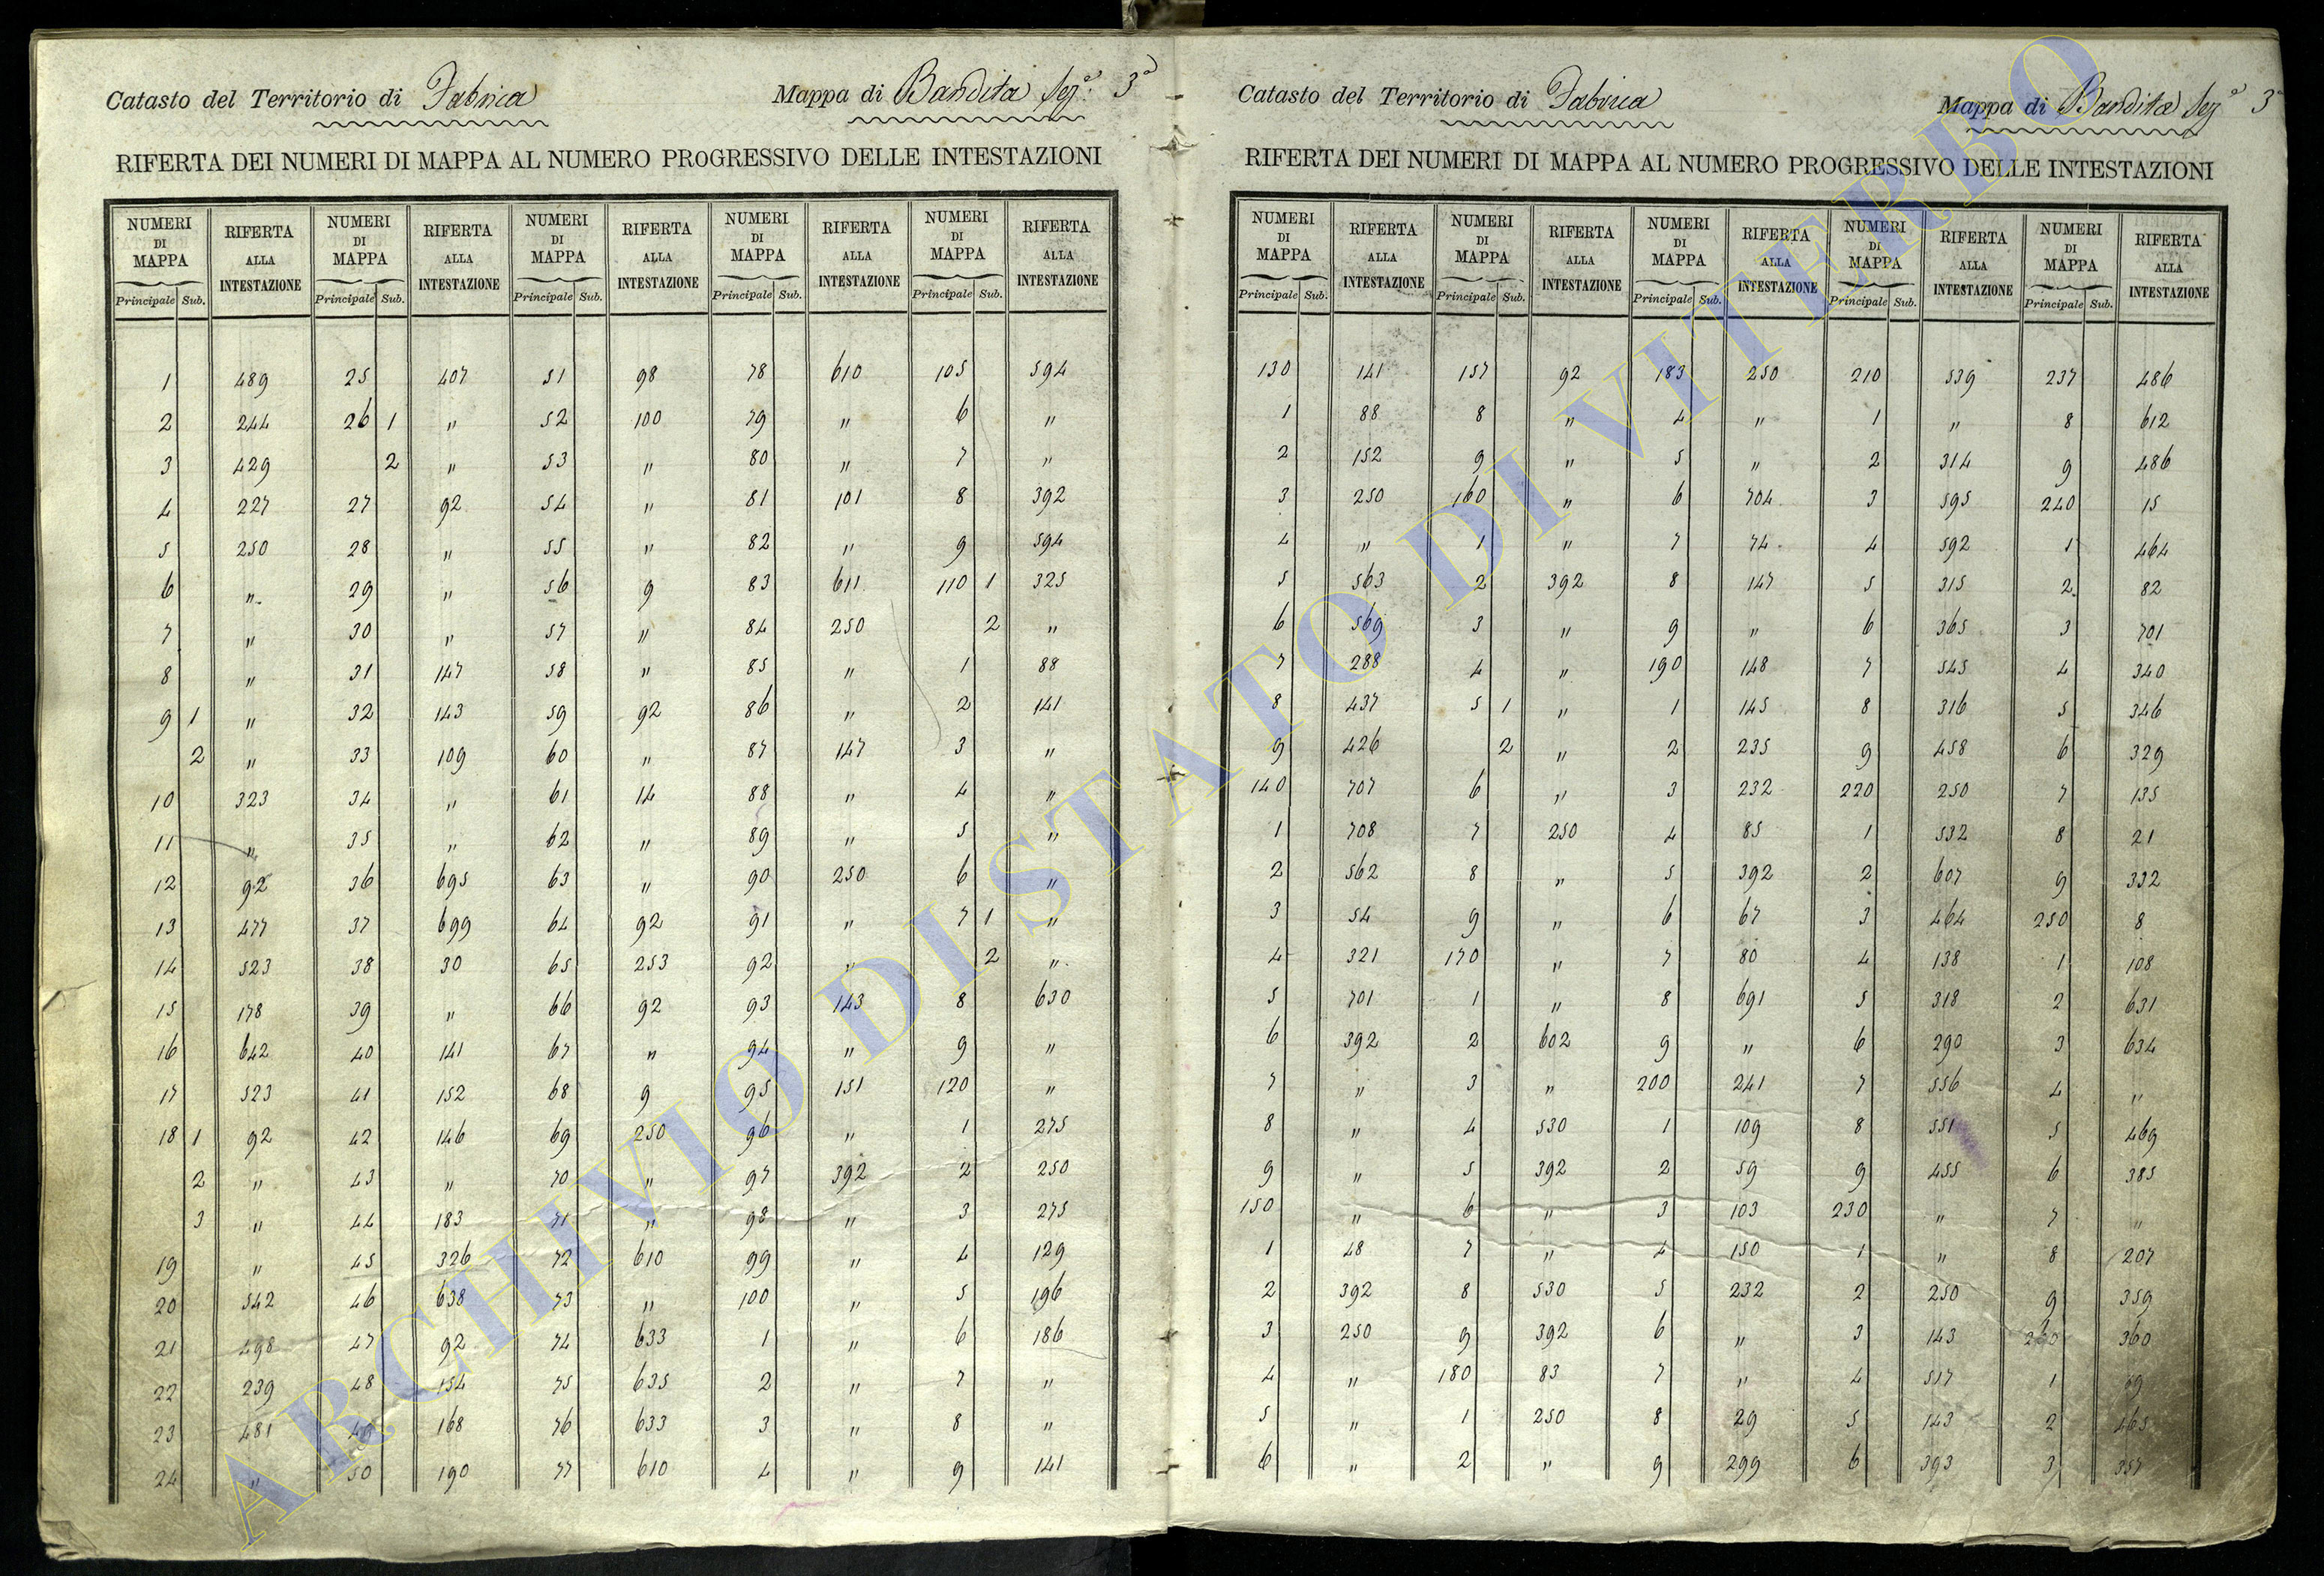 Catasto del Territorio di Fabrica Mappa di Bandita Sez.ᵃ 3ᵃ
RIFERTA DEI NUMERI DI MAPPA AL NUMERO PROGRESSIVO DELLE INTESTAZIONI
NUMERI DI MAPPA RIFERTA ALLA INTESTAZIONE NUMERI DI MAPPA RIFERTA ALLA INTESTAZIONE NUMERI DI MAPPA RIFERTA ALLA INTESTAZIONE NUMERI DI MAPPA RIFERTA ALLA INTESTAZIONE NUMERI DI MAPPA RIFERTA ALLA INTESTAZIONE
Principale Sub. Principale Sub. Principale Sub. Principale Sub. Principale Sub.
1 489 25 407 51 98 78 610 105 594
2 244 26 1 " 52 100 79 " 6 "
3 429 2 " 53 " 80 " 7 "
4 227 27 92 54 " 81 101 8 392
5 250 28 " 55 " 82 " 9 594
6 " 29 " 56 9 83 611 110 1 325
7 " 30 " 57 " 84 250 2 "
8 " 31 147 58 " 85 " 1 88
9 1 " 32 143 59 92 86 " 2 141
2 " 33 109 60 " 87 147 3 "
10 323 34 " 61 14 88 " 4 "
11 " 35 " 62 " 89 " 5 "
12 92 36 695 63 " 90 250 6 "
13 477 37 699 64 92 91 " 7 1 "
14 523 38 30 65 253 92 " 2 "
15 178 39 " 66 92 93 143 8 630
16 642 40 141 67 " 94 " 9 "
17 523 41 152 68 9 95 151 120 "
18 1 92 42 146 69 250 96 " 1 275
2 " 43 " 70 " 97 392 2 250
3 " 44 183 71 " 98 " 3 275
19 " 45 326 72 610 99 " 4 129
20 542 46 638 73 " 100 " 5 196
21 498 47 92 74 633 1 " 6 186
22 239 48 154 75 635 2 " 7 "
23 481 49 168 76 633 3 " 8 "
24 " 50 190 77 610 4 " 9 141
Catasto del Territorio di Fabrica Mappa di Bandita Sezᵃ 3ᵃ
RIFERTA DEI NUMERI DI MAPPA AL NUMERO PROGRESSIVO DELLE INTESTAZIONI
NUMERI DI MAPPA RIFERTA ALLA INTESTAZIONE NUMERI DI MAPPA RIFERTA ALLA INTESTAZIONE NUMERI DI MAPPA RIFERTA ALLA INTESTAZIONE NUMERI DI MAPPA RIFERTA ALLA INTESTAZIONE NUMERI DI MAPPA RIFERTA ALLA INTESTAZIONE
Principale Sub. Principale Sub. Principale Sub. Principale Sub. Principale Sub.
130 141 157 92 183 250 210 539 237 486
1 88 8 " 4 " 1 " 8 612
2 152 9 " 5 " 2 314 9 486
3 250 160 " 6 704 3 595 240 15
4 " 1 " 7 74 4 592 1 464
5 563 2 392 8 147 5 315 2 82
6 569 3 " 9 " 6 365 3 701
7 288 4 " 190 148 7 545 4 340
8 437 5 1 " 1 145 8 316 5 346
9 426 2 " 2 235 9 458 6 329
140 707 6 " 3 232 220 250 7 135
1 708 7 250 4 85 1 532 8 21
2 562 8 " 5 392 2 607 9 332
3 54 9 " 6 67 3 464 250 8
4 321 170 " 7 80 4 138 1 108
5 701 1 " 8 691 5 318 2 631
6 392 2 602 9 " 6 290 3 634
7 " 3 " 200 241 7 556 4 "
8 " 4 530 1 109 8 551 5 469
9 " 5 392 2 59 9 455 6 385
150 " 6 " 3 103 230 " 7 "
1 48 7 " 4 150 1 " 8 207
2 392 8 530 5 232 2 250 9 359
3 250 9 392 6 " 3 143 260 360
4 " 180 83 7 " 4 517 1
5 " 1 250 8 29 5 143 2 465
6 " 2 " 9 299 6 393 3 357
ARCHIVIO DI STATO DI VITERBO